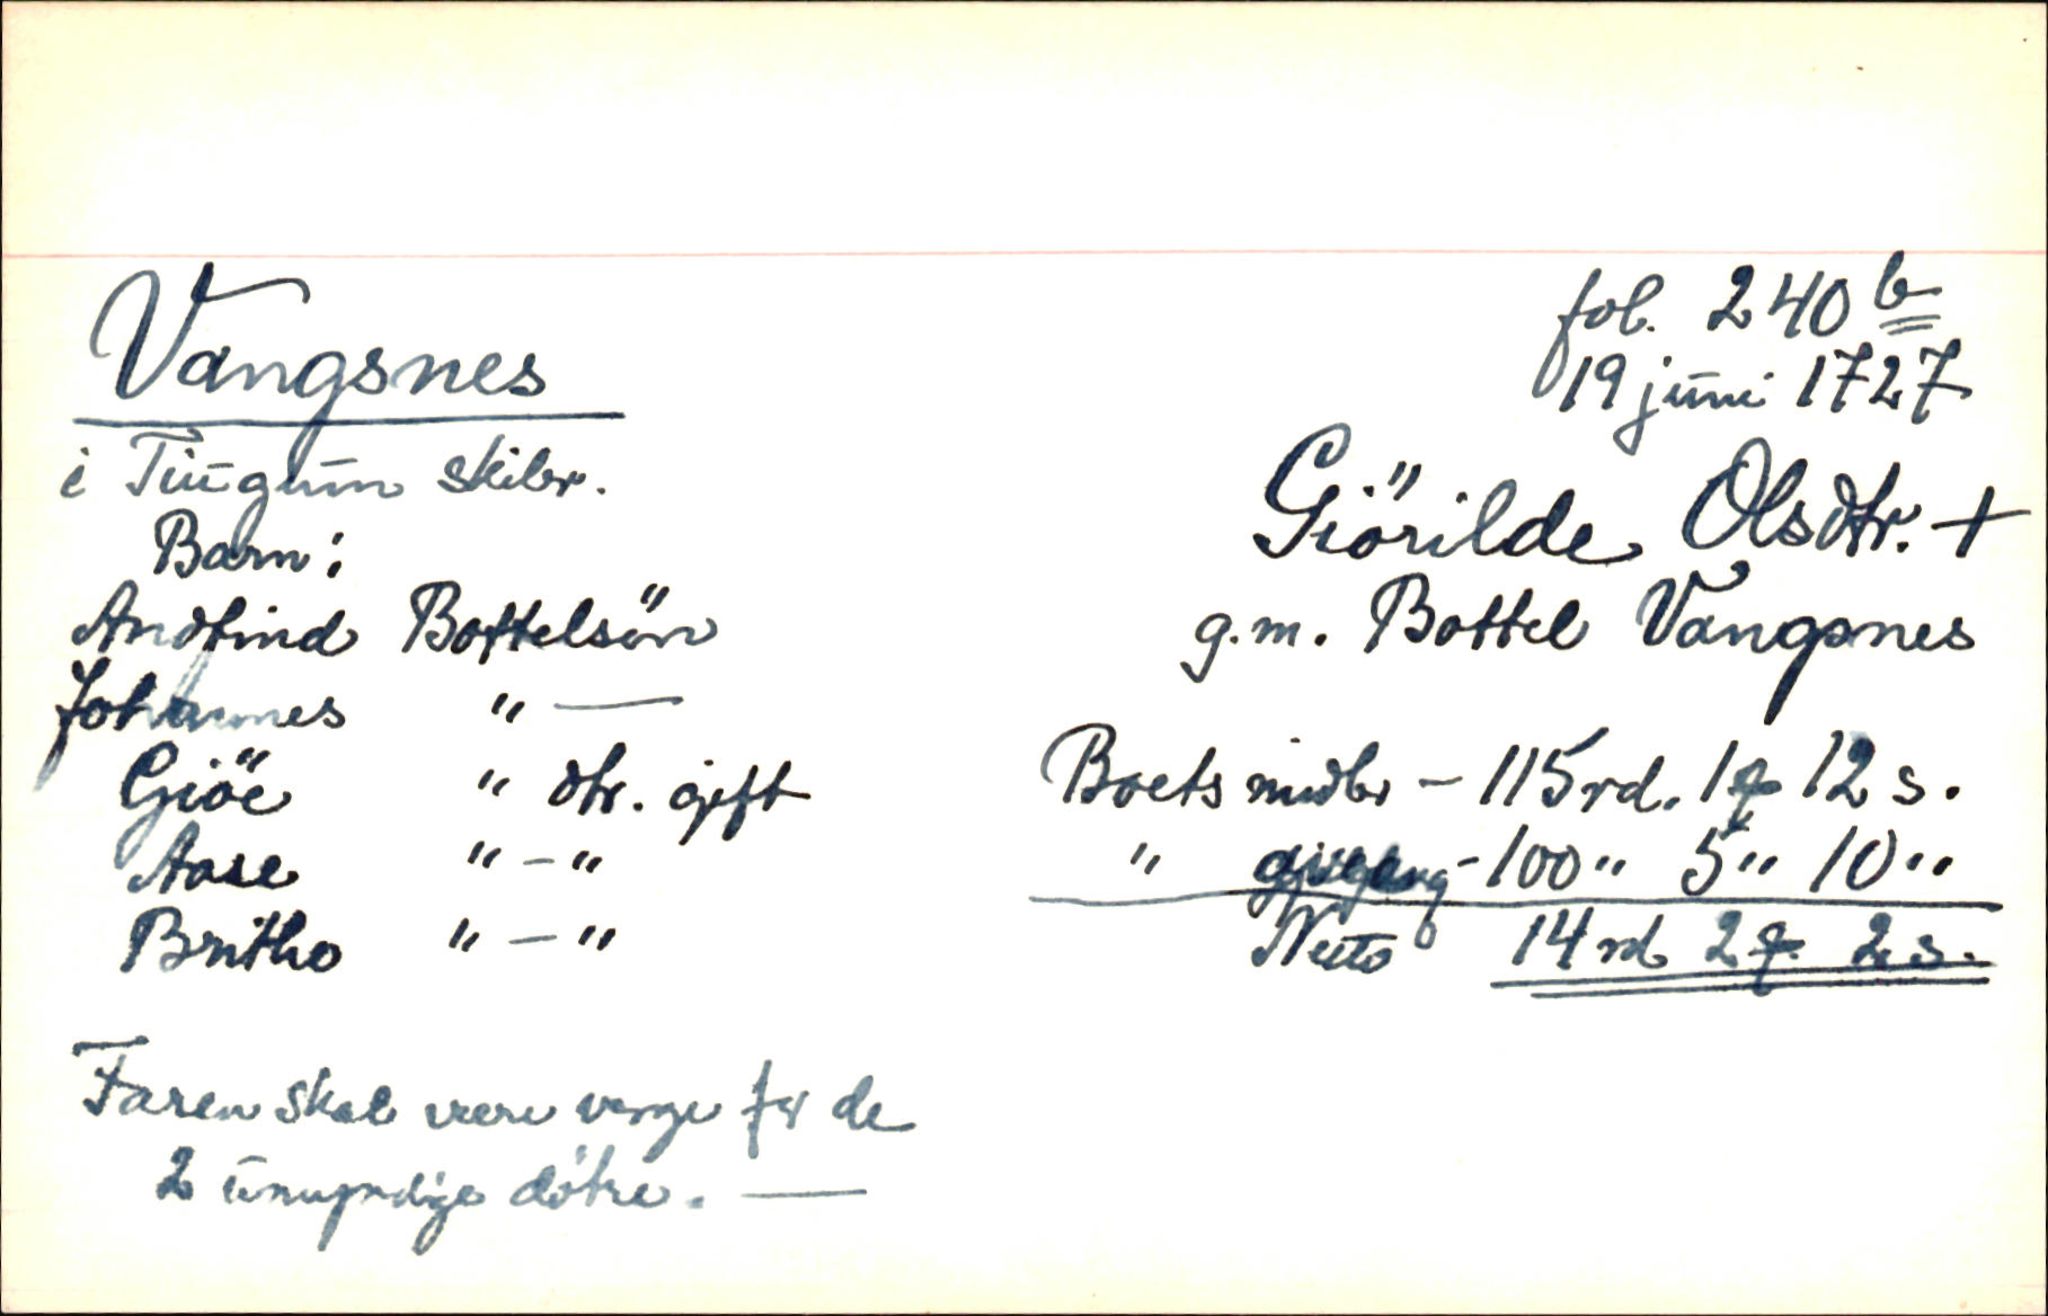 fol. 240 b
19 juni 1727
Vangsnes
i Tiugum skibr.
Giörilde Olsdtr. +
g.m. Bottel Vangsnes
Barn:
Andfind Bottelsön
Johannes " —
Giöe " dtr. gift
Aase " – "
Britho " – "
Boets midler – 115 rd. 1 q 12 s.
" – 100 " 5 " 10 "
Netto 14 rd 2 q. 2 s.
Faren skal være verge for de
2 umyndige døtre. —